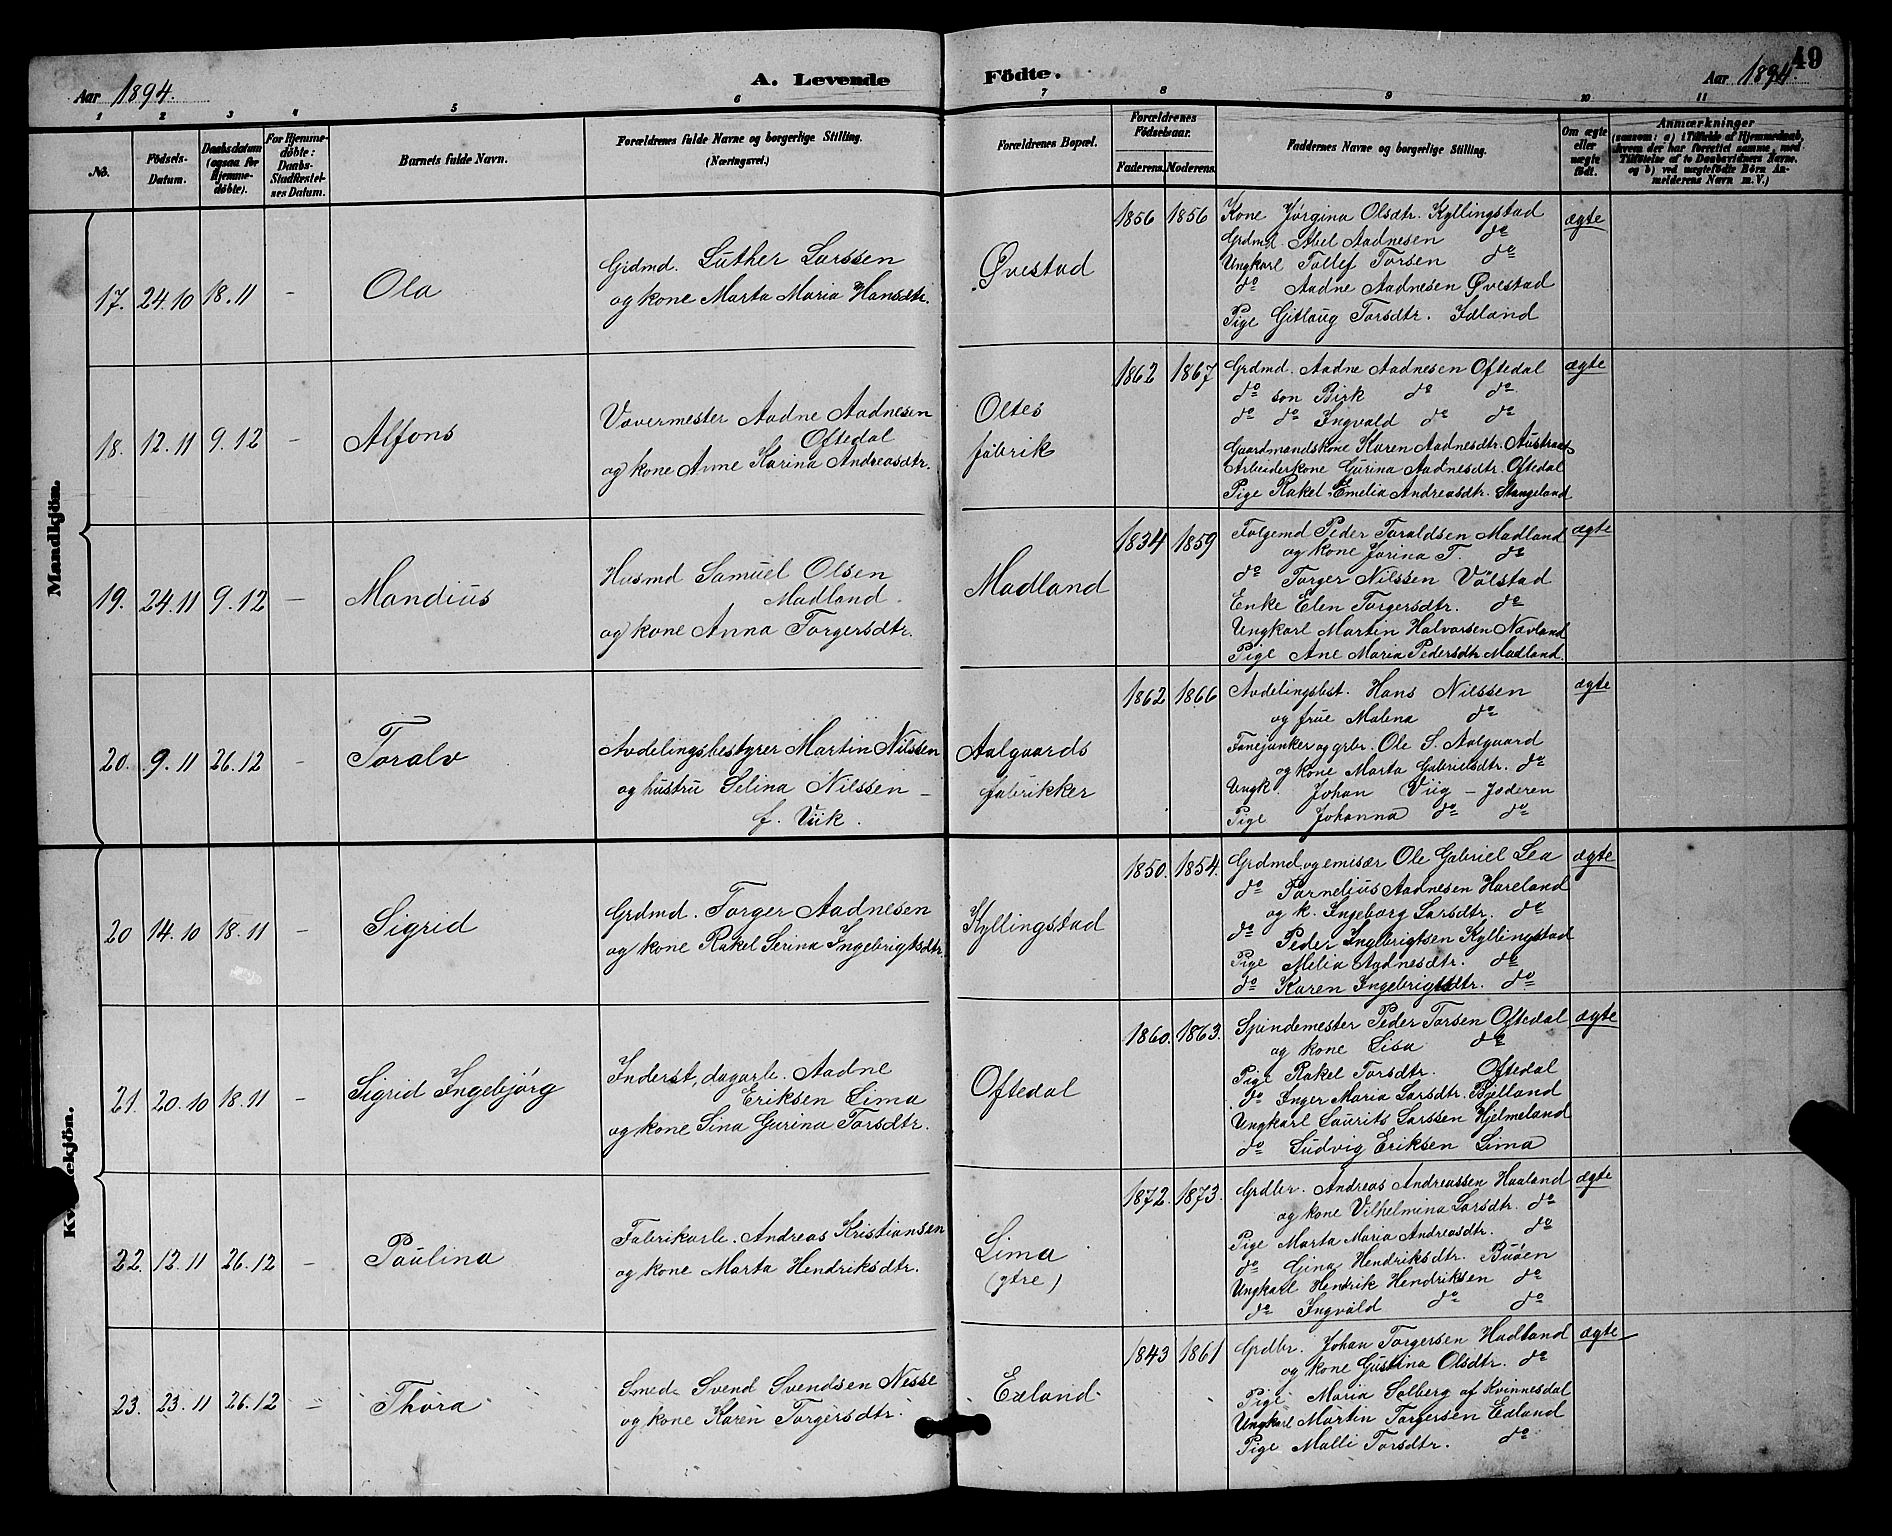 Aar 1894.
A. Levende Födte.
Aar 1894.
49
1 2 3 4 5 6 7 8 9 10 11
No.
Födsels-
Datum.
Daabsdatum
(ogsaa for
Hjemme-
døbte).
For Hjemme-
døbte:
Daabs-
Stadfæstel-
nes Datum.
Barnets fulde Navn.
Forældrenes fulde Navne og borgerlige Stilling.
(Næringsvei.)
Forældrenes Bopæl.
Forældrenes
Födselsaar.
Faderens. Moderens.
Faddernes Navne og borgerlige Stilling.
Om ægte
eller
uægte
födt.
Anmærkninger
(saasom: a) i Tilfælde af Hjemmedaab,
hvem der har forrettet samme, med
Tilføielse af to Daabsvidners Navne.
og b) ved uægtefödte Börn An-
melderens Navn m. V.)
Mandkjön.
17. 24.10 18.11 – Ola
Grdmd. Luther Larssen
og kone Marta Maria Hansdtr.
Øvestad
1856 1856
Kone Jørgina Olsdtr. Kyllingstad
Grdmd. Abel Aadnesen do
Ungkarl Tollef Torsen do
do Aadne Aadnesen Øvestad
Pige Gitlaug Torsdtr. Idland
ægte
18. 12.11 9.12 – Alfons
Vævermester Aadne Aadnesen
Oftedal
og kone Anne Karina Andreasdtr.
Oltes
fabrik
1862 1867
Grdmd. Aadne Aadnesen Oftedal
do søn Birk do do
do do Ingvald do do
Gaardmandskone Karen Aadnesdtr. Austraat
Arbeiderkone Gurina Aadnesdtr. Oftedal
Pige Rakel Emelia Andreasdtr. Stangeland
ægte
19. 24.11 9.12 – Mandius
Husmd Samuel Olsen
Madland.
og kone Anna Torgersdtr.
Madland
1834 1859
Folgemd Peder Toraldsen Madland
og kone Jorina T. do
do Torger Nilssen Vølstad
Enke Elen Torgersdtr. do
Ungkarl Martin Halvorsen Navland
Pige Ane Maria Pedersdtr Madland.
ægte
20. 9.11 26.12 – Toralv
Avdelingsbestyrer Martin Nilssen
og hustru Selina Nilssen –
f. Viik.
Aalgaards
fabrikker
1862 1866
Avdelingsbst. Hans Nilssen
og frue Malena do
Fanejunker og grbr. Ole S. Aalgaard
og kone Marta Gabrielsdtr. do
Ungk. Johan Viig – Jæderen
Pige Johanna do do
ægte
Kvindekjön.
20 14.10 18.11 – Sigrid
Grdmd. Torger Aadnesen
og kone Rakel Serina Ingebrigtsdtr.
Kyllingstad
1850. 1854.
Grdmd og emisær Ole Gabriel Lea
do Parnelius Aadnesen Hareland
og k. Ingeborg Larsdtr. do
do Peder Ingebrigtsen Kyllingstad
Pige Melia Aadnesdtr. do
do Karen Ingebrigtsdtr. do
ægte
21. 20.10 18.11 – Sigrid Ingebjørg
Inderst, dagarb. Aadne
Eriksen Lima
og kone Sina Gurina Torsdtr.
Oftedal
1860. 1863.
Spindemester Peder Torsen Oftedal
og kone Lisa do
Pige Rakel Torsdtr. Oftedal
do Inger Maria Larsdtr. Bjelland
Ungkarl Laurits Larssen Hjelmeland
do Ludvig Eriksen Lima
ægte
22. 12.11 26.12 – Paulina
Fabrikarb. Andreas Kristiansen
og kone Marta Hendriksdtr.
Lima
(ytre)
1872. 1873.
Grdbr. Andreas Andreassen Haaland
og kone Vilhelmina Larsdtr. do
Pige Marta Maria Andreasdtr. do
do Gina Hendriksdtr. Buøen
Ungkarl Hendrik Hendriksen do
do Ingvald do do
ægte
23. 23.11 26.12 – Thora
Smed Svend Svendsen Nesse
og kone Karen Torgersdtr.
Edland
1843 1861
Grdbr. Johan Torgersen Hadland
og kone Gustina Olsdtr. do
Pige Maria Solberg af Kvinnesdal
Ungkarl Martin Torgersen Edland
Pige Malli Torsdtr. do
ægte